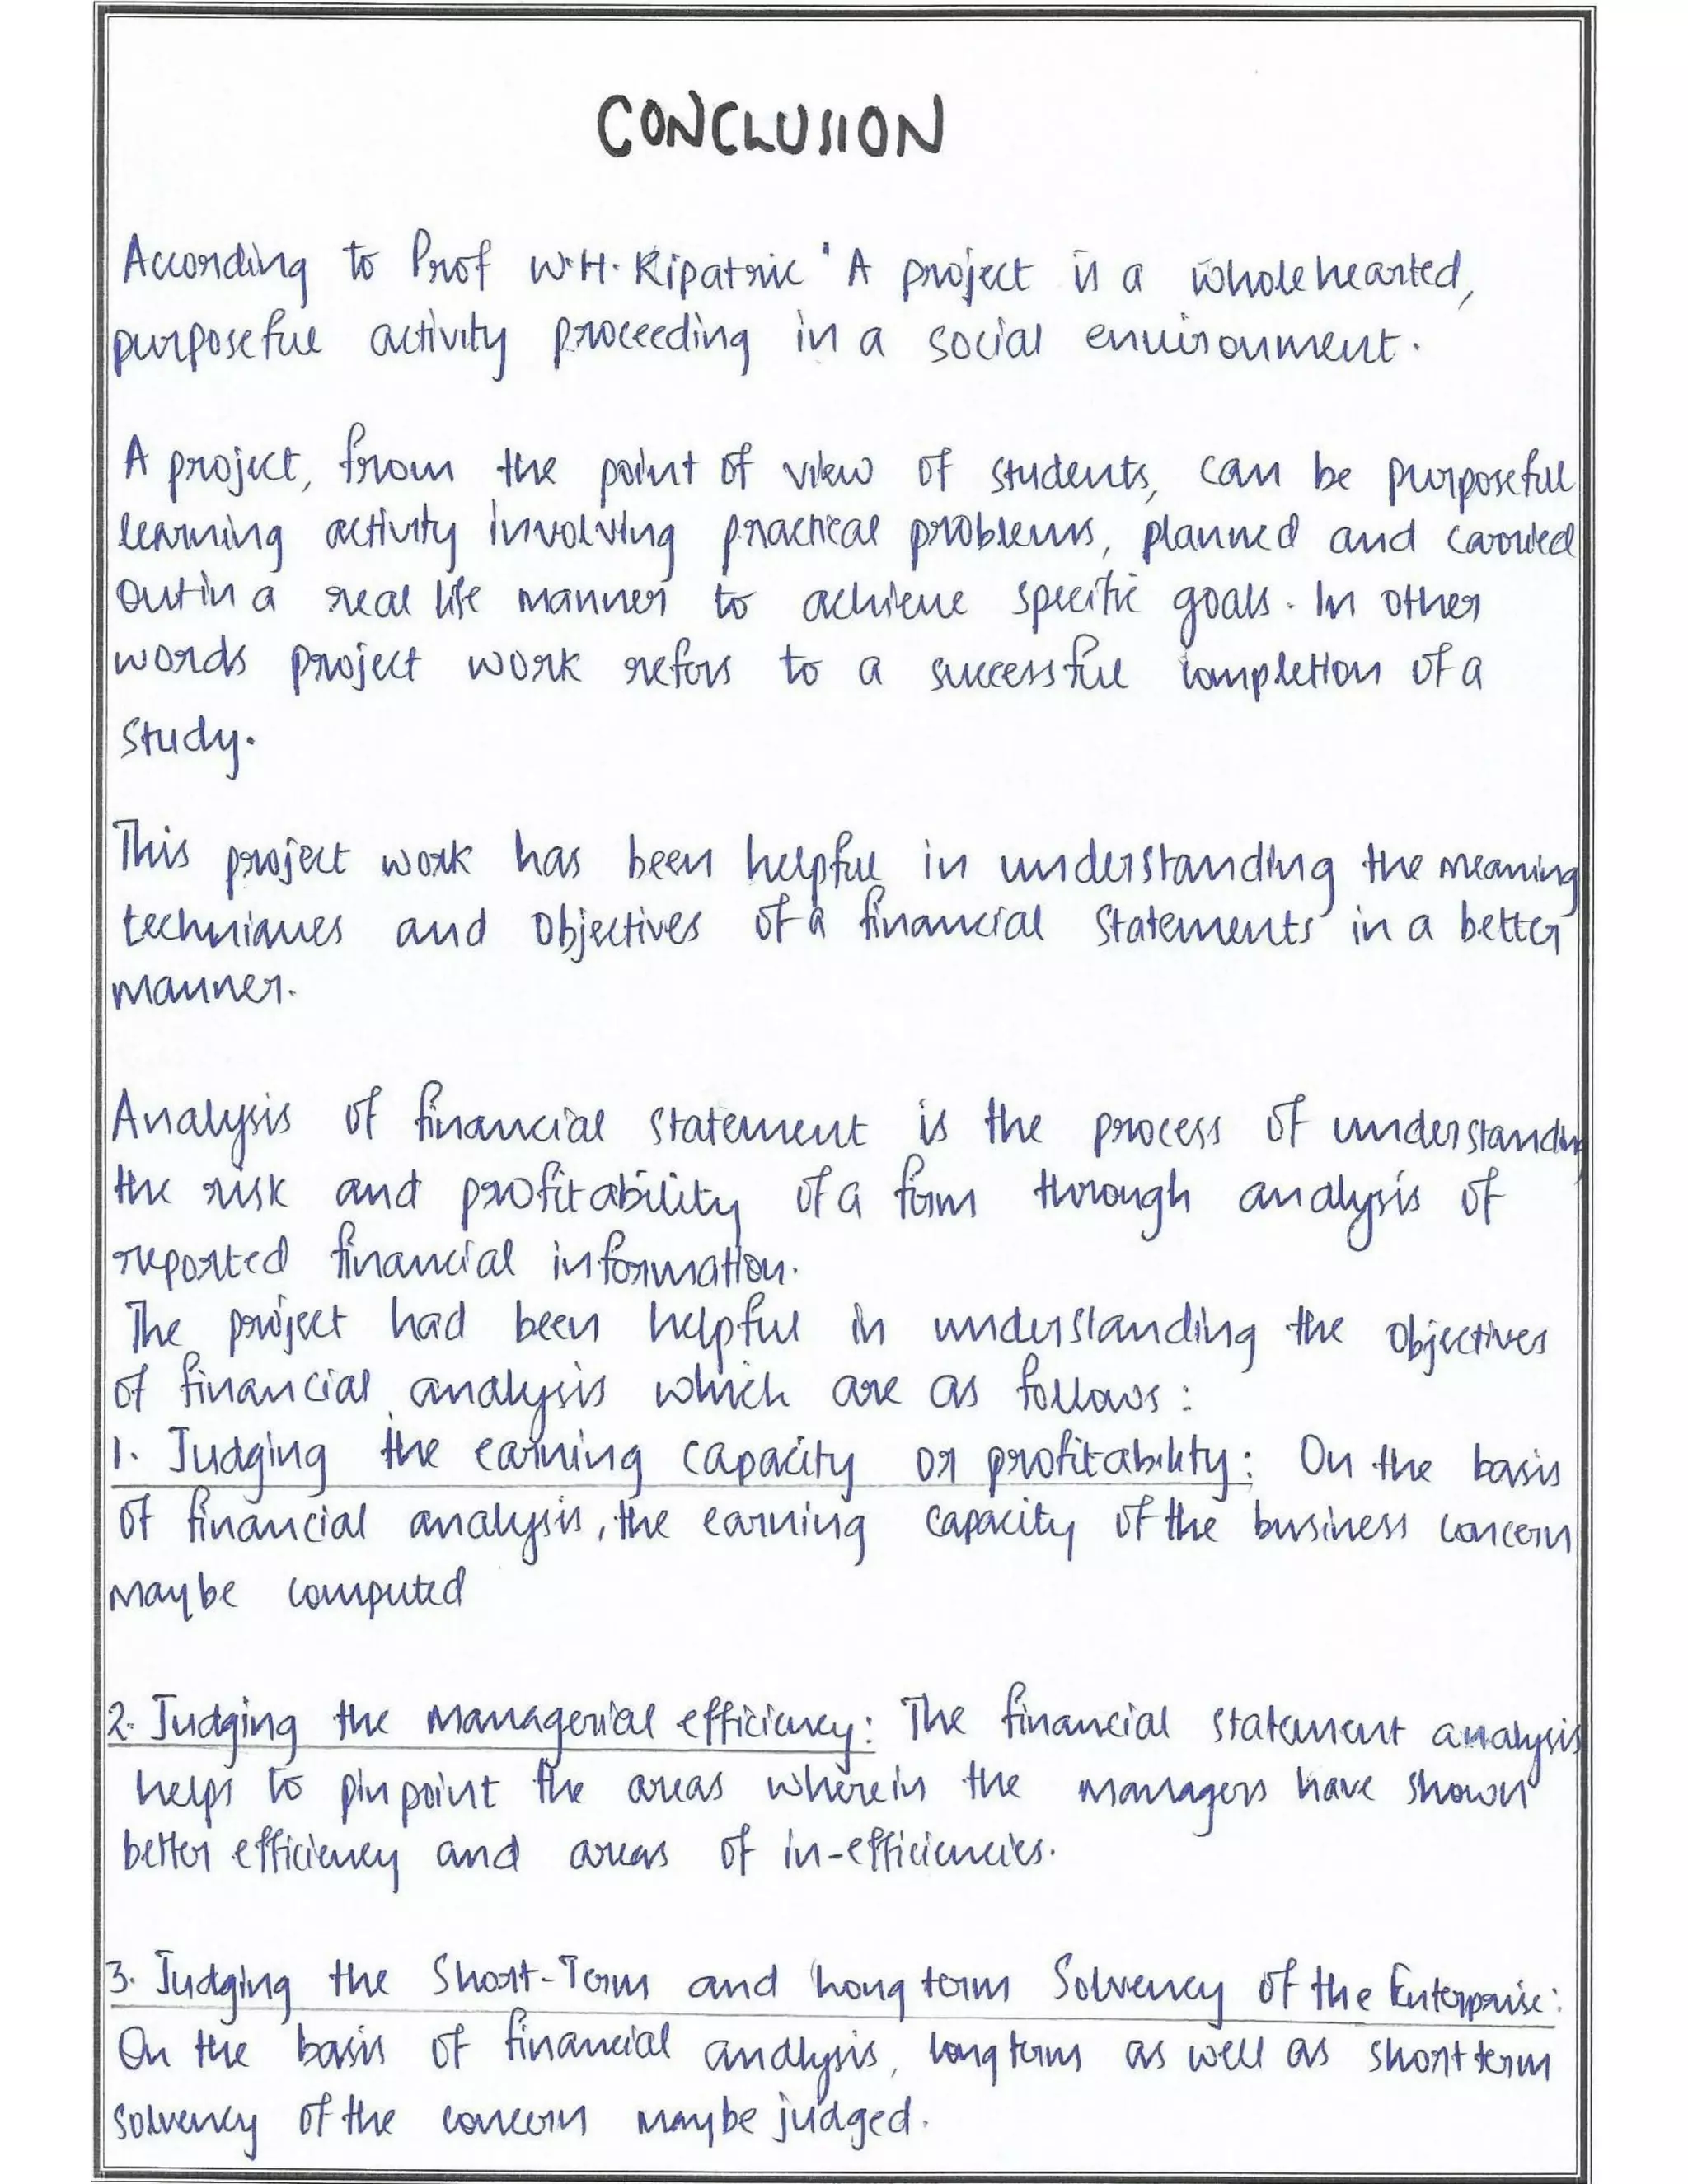 CONCLUSION
According to Prof W.H. Kipatric ' A project is a wholehearted,
purposeful activity proceeding in a social environment.
A project, from the point of view of students, can be purposeful
learning activity involving practical problems, planned and carried
out in a real life manner to achieve specific goals. In other
words project work refers to a successful completion of a
study.
This project work has been helpful in understanding the meaning
techniques and objectives of a financial statements in a better
manner.
Analysis of financial statement is the process of understanding
the risk and profitability of a firm through analysis of
reported financial information.
The project had been helpful in understanding the objectives
of financial analysis which are as follows:
1. Judging the earning capacity or profitability: On the basis
of financial analysis, the earning capacity of the business concern
maybe computed
2. Judging the managerial efficiency: The financial statement analysis
helps to pin point the areas wherein the managers have shown
better efficiency and areas of in-efficiencies.
3. Judging the Short-Term and long term Solvency of the Enterprise:
On the basis of financial analysis, long term as well as short term
solvency of the concern maybe judged.